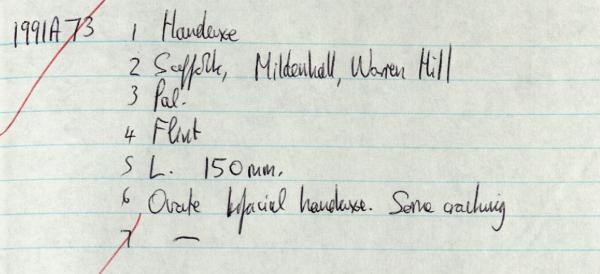 1991A 73 1 Handaxe
2 Suffolk, Mildenhall, Warren Hill
3 Pal.
4 Flint
5 L. 150mm.
6 Ovate bifacial handaxe. Some crathing
7 —